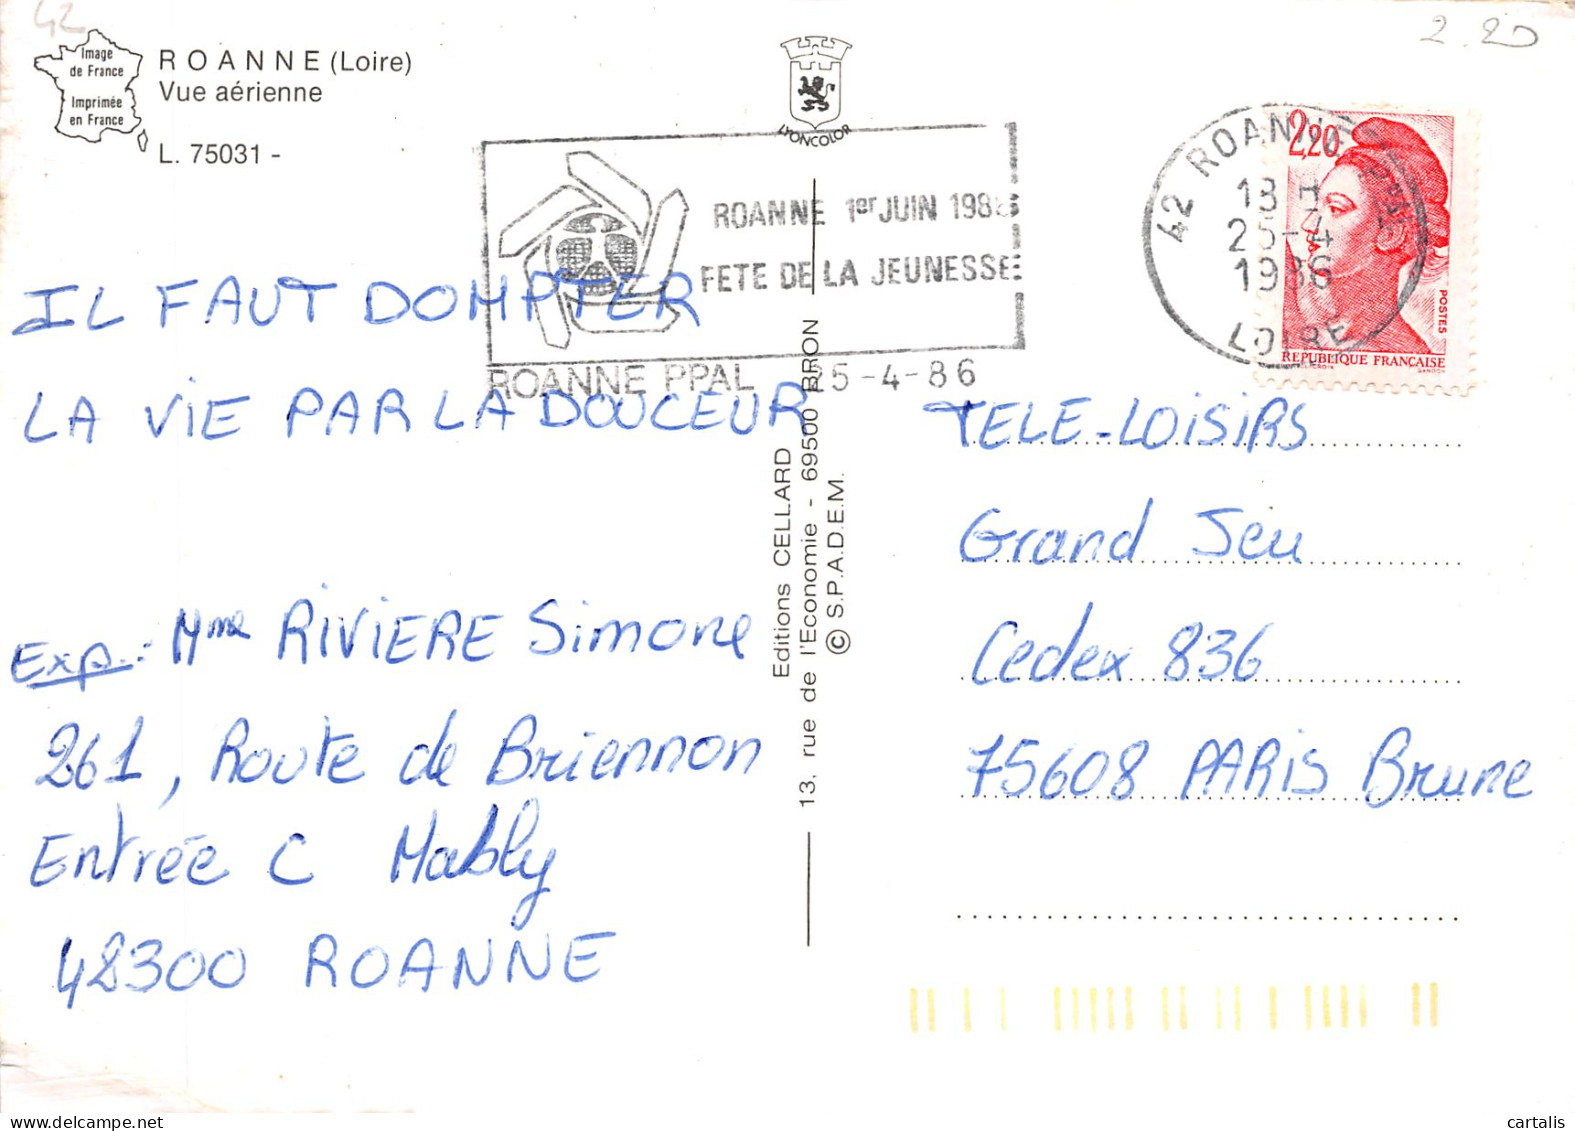 42
2.20
Image
de France
Imprimée
en France
ROANNE (Loire)
Vue aérienne
L. 75031 -
LYONCOLOR
ROANNE 1er JUIN 1986
FETE DE LA JEUNESSE
ROANNE PPAL 25-4-86
42 ROANNE PPAL
18 H
25-4
1986
LOIRE
2,20
POSTES
REPUBLIQUE FRANÇAISE
GANDON
IL FAUT DOMPTER
LA VIE PAR LA DOUCEUR
Exp.: Mme RIVIERE Simone
261, Route de Briennon
Entrée C Mably
42300 ROANNE
Editions CELLARD
13, rue de l'Economie - 69500 BRON
© S.P.A.D.E.M.
TELE-LOISIRS
Grand Jeu
Cedex 836
75608 PARIS Brune
cartalis